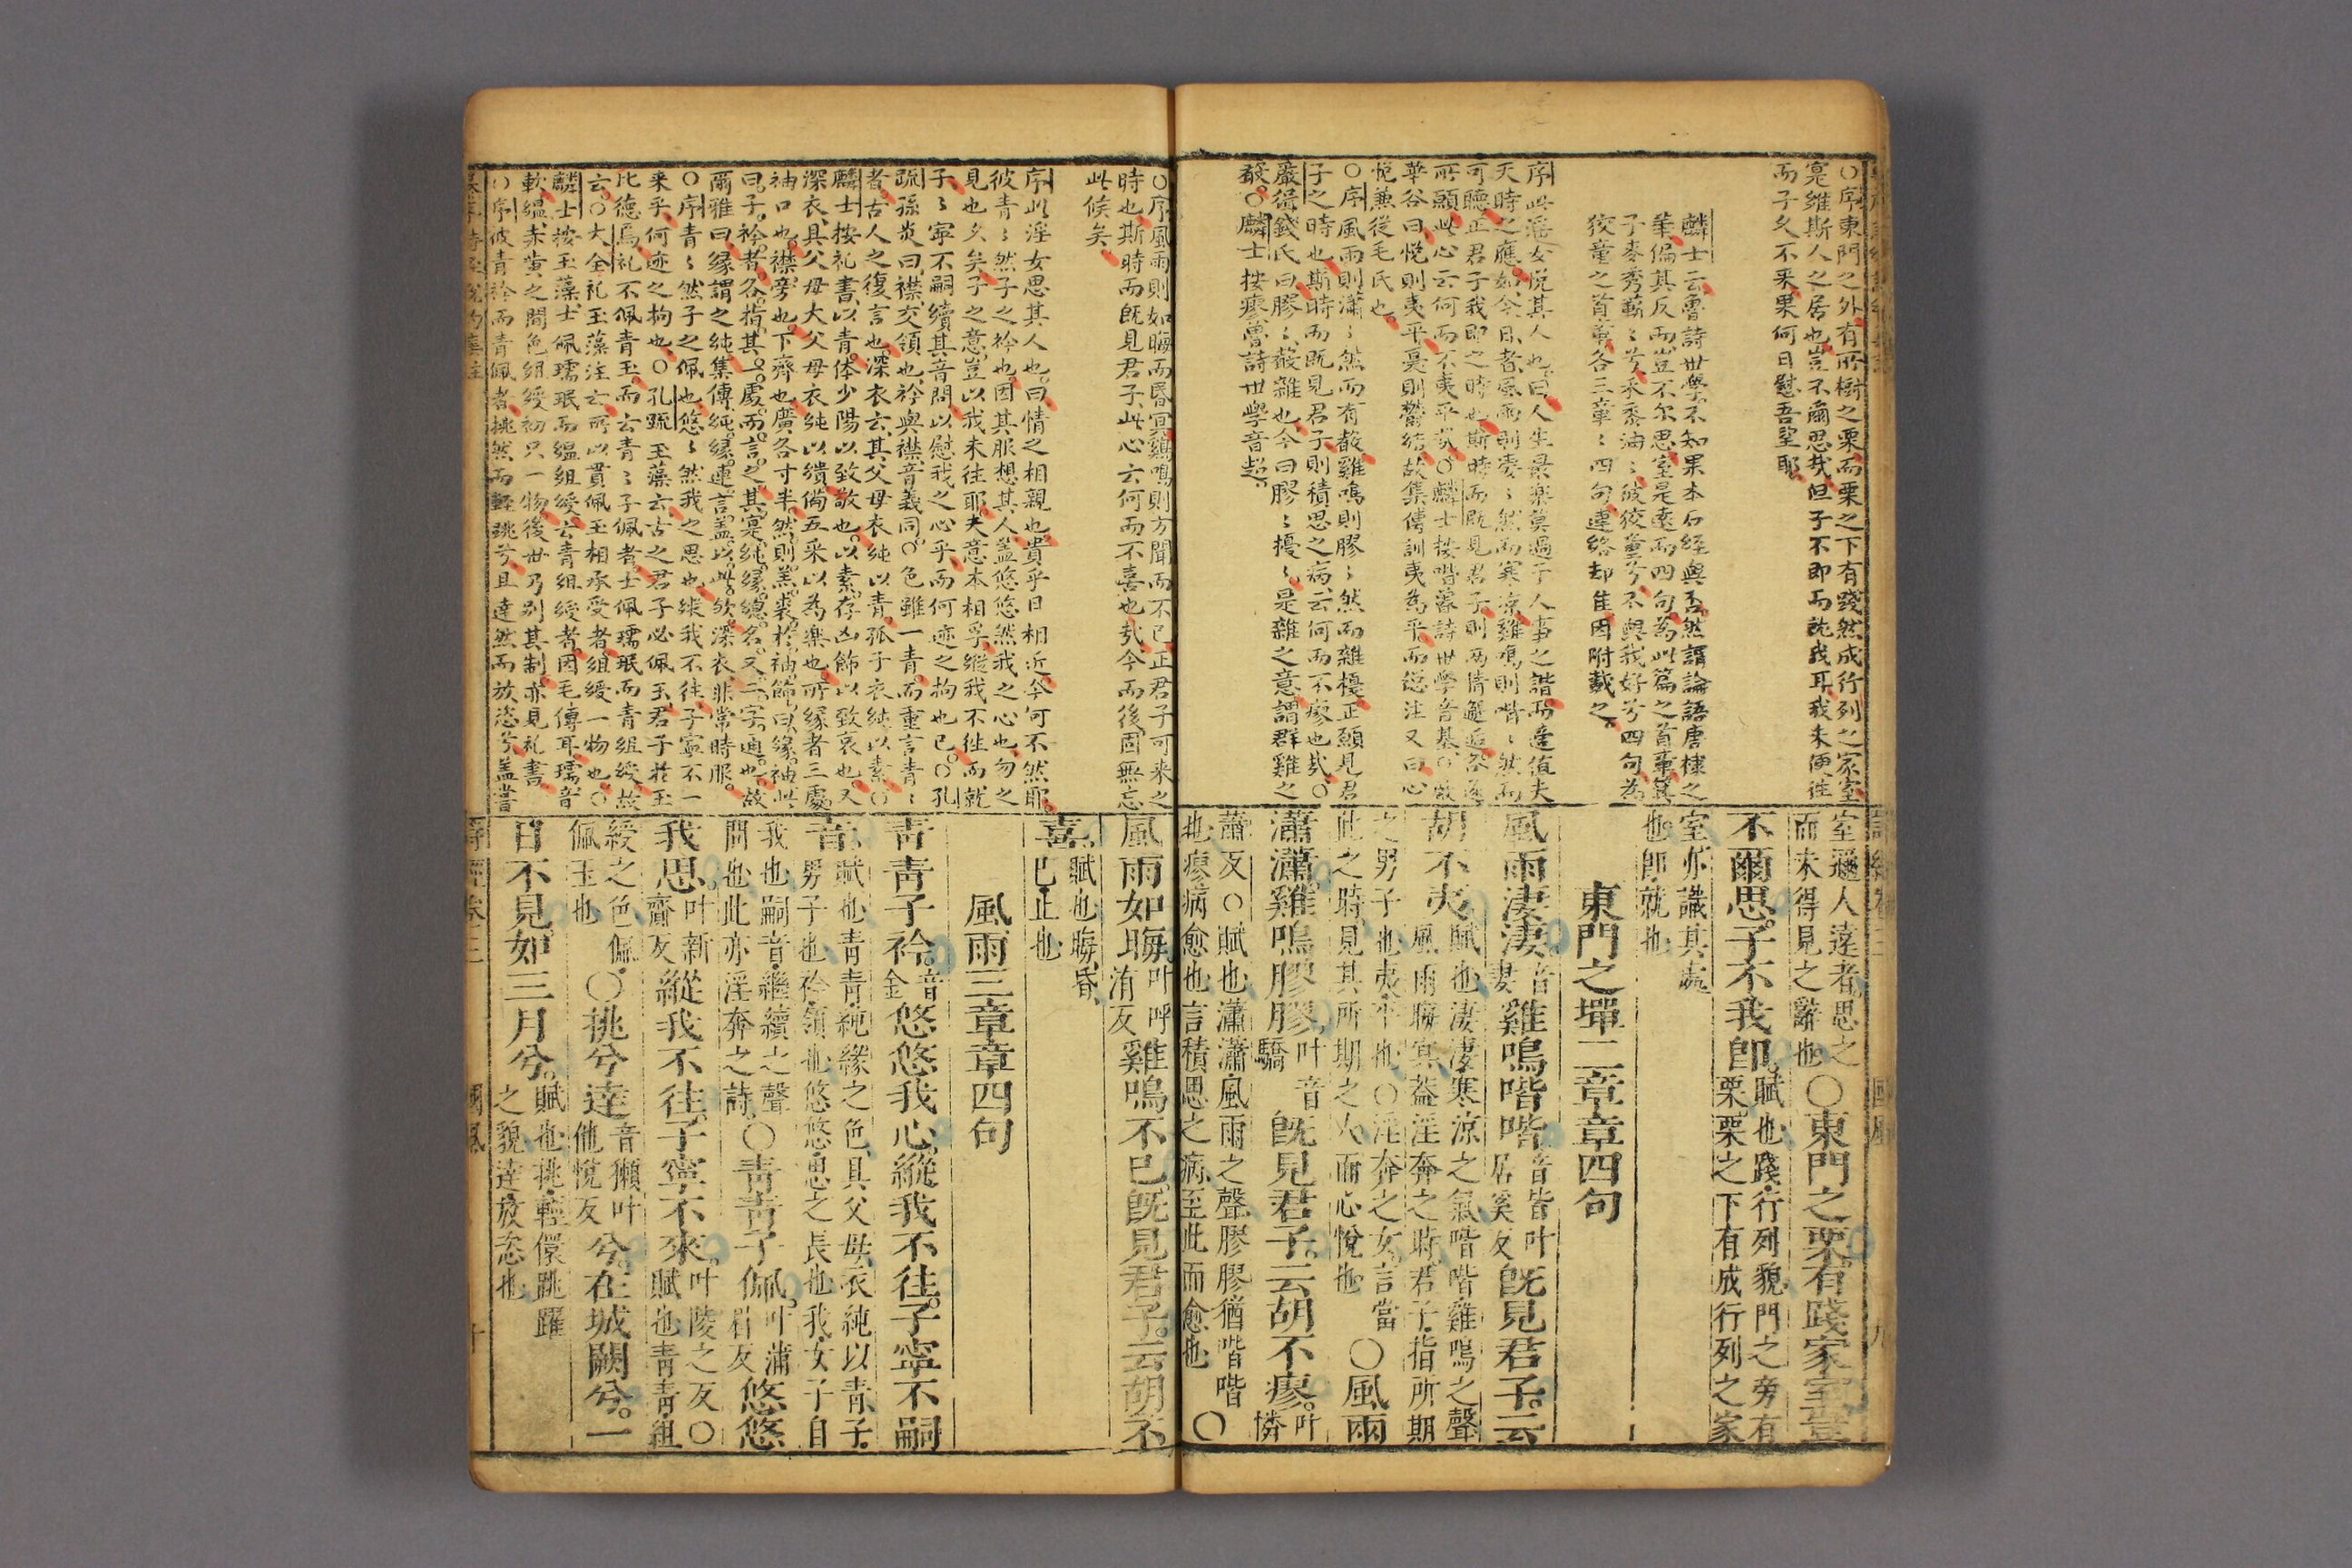 ○序東門之外有所樹之栗而栗之下有踐然成行列之家室
寔維斯人之居也豈不爾思哉但子不即而就我耳我未便往
而子久不来果何日慰吾望耶
麟士云魯詩世學不知果本石經與否然謂論語唐棣之
華偏其反而豈不尔思室是遠而四句為此篇之首章箕
子麥秀蘄〻兮禾黍油〻彼狡童兮不與我好兮四句為
狡童之首章各三章〻四句連絡却佳因附載之
序此淫女悅其人也曰人生最樂莫過于人事之諧而適值夫
天時之應如今日者風雨則凄〻然而寒凉雞鳴則喈〻然而
可聽正君子我即之時也斯時而既見君子則兩情邂逅
所願此心云何而不夷平哉○麟士按喈當詩世學音基○故
華谷曰悅則夷平憂則鬱結故集傳訓夷為平而總注又曰心
悅兼從毛氏也
○序風雨則瀟〻然而有聲雞鳴則膠〻然而雜擾正願見君
子之時也斯時而既見君子則積思之病云何而不瘳也哉○
嚴緝錢氏曰膠〻聲雜也今曰膠〻擾〻是雜之意謂群雞之
聲○麟士按瘳魯詩世學音超
室邇人遠者思之
而未得見之辭也○東門之栗有踐家室豈
不爾思子不我即賦也踐行列貌門之旁有
栗栗之下有成行列之家
室亦識其處
也即就也
東門之墠二章章四句
風雨淒淒音妻雞鳴喈喈音皆叶居奚反既見君子云
胡不夷賦也淒淒寒涼之氣喈喈雞鳴之聲
風雨晦冥蓋淫奔之時君子指所期
之男子也夷平也○淫奔之女言當
此之時見其所期之人而心悅也○風雨
瀟瀟雞鳴膠膠叶音驕既見君子云胡不瘳叶憐
蕭反○賦也瀟瀟風雨之聲膠膠猶喈喈
也瘳病愈也言積思之病至此而愈也○
○序風雨則如晦而昏冥雞鳴則方聞而不已正君子可来之
時也斯時而既見君子此心云何而不喜也哉今而後固無忘
此候矣
序此淫女思其人也曰情之相親也貴乎日相近今何不然耶
彼青〻然子之衿也因其服想其人盖悠悠然我之心也勿之
見也久矣子之意豈以我未往耶夫意本相孚縱我不往而就
子〻寧不嗣續其音問以慰我之心乎而何迹之拘也已○孔
疏孫炎曰襟交領也衿與襟音義同○色雖一青而重言青〻
者古人之復言也深衣云其父母衣純以青孤子衣純以素○
麟士按礼書以青体少陽以致敬也以素存凶飾以致哀也又
深衣具父母大父母衣純以繢備五采以為樂也所緣者三處
袖口也襟旁也下齊也廣各寸半然則羔裘於袖飾曰緣袖此
曰子衿者各指其一處而言之其寔純緣總名又二字通也故
爾雅曰緣謂之純集傳純緣連言盖以此欤深衣非常時服
○序青〻然子之佩也悠〻然我之思也縱我不往子寧不一
来乎何迹之拘也○孔疏玉藻云古之君子必佩玉君子於玉
比德焉礼不佩青玉而云青〻子佩者士佩瓀珉而青組綬故
云○大全礼玉藻注云所以貫佩玉相承受者組綬一物也○
麟士按玉藻士佩瓀珉而縕組綬云青組綬者因毛傳耳瓀音
軟縕赤黄之間色組綬初只一物後世乃别其制亦見礼書
○序彼青衿而青佩者挑然而輕跳兮且達然而放恣兮盖嘗
風雨如晦叶呼洧反雞鳴不已既見君子云胡不
喜賦也晦昏
已止也
風雨三章章四句
青青子衿音金悠悠我心縱我不往子寧不嗣
音賦也青青純緣之色具父母衣純以青子
男子也衿領也悠悠思之長也我女子自
我也嗣音繼續其聲
問也此亦淫奔之詩○青青子佩叶蒲眉反悠悠
我思叶新齎反縱我不往子寧不來叶陵之反○賦也青青組
綬之色佩
佩玉也○挑兮達音獺叶他悅反兮在城闕兮一
日不見如三月兮賦也挑輕儇跳躍
之貌達放恣也